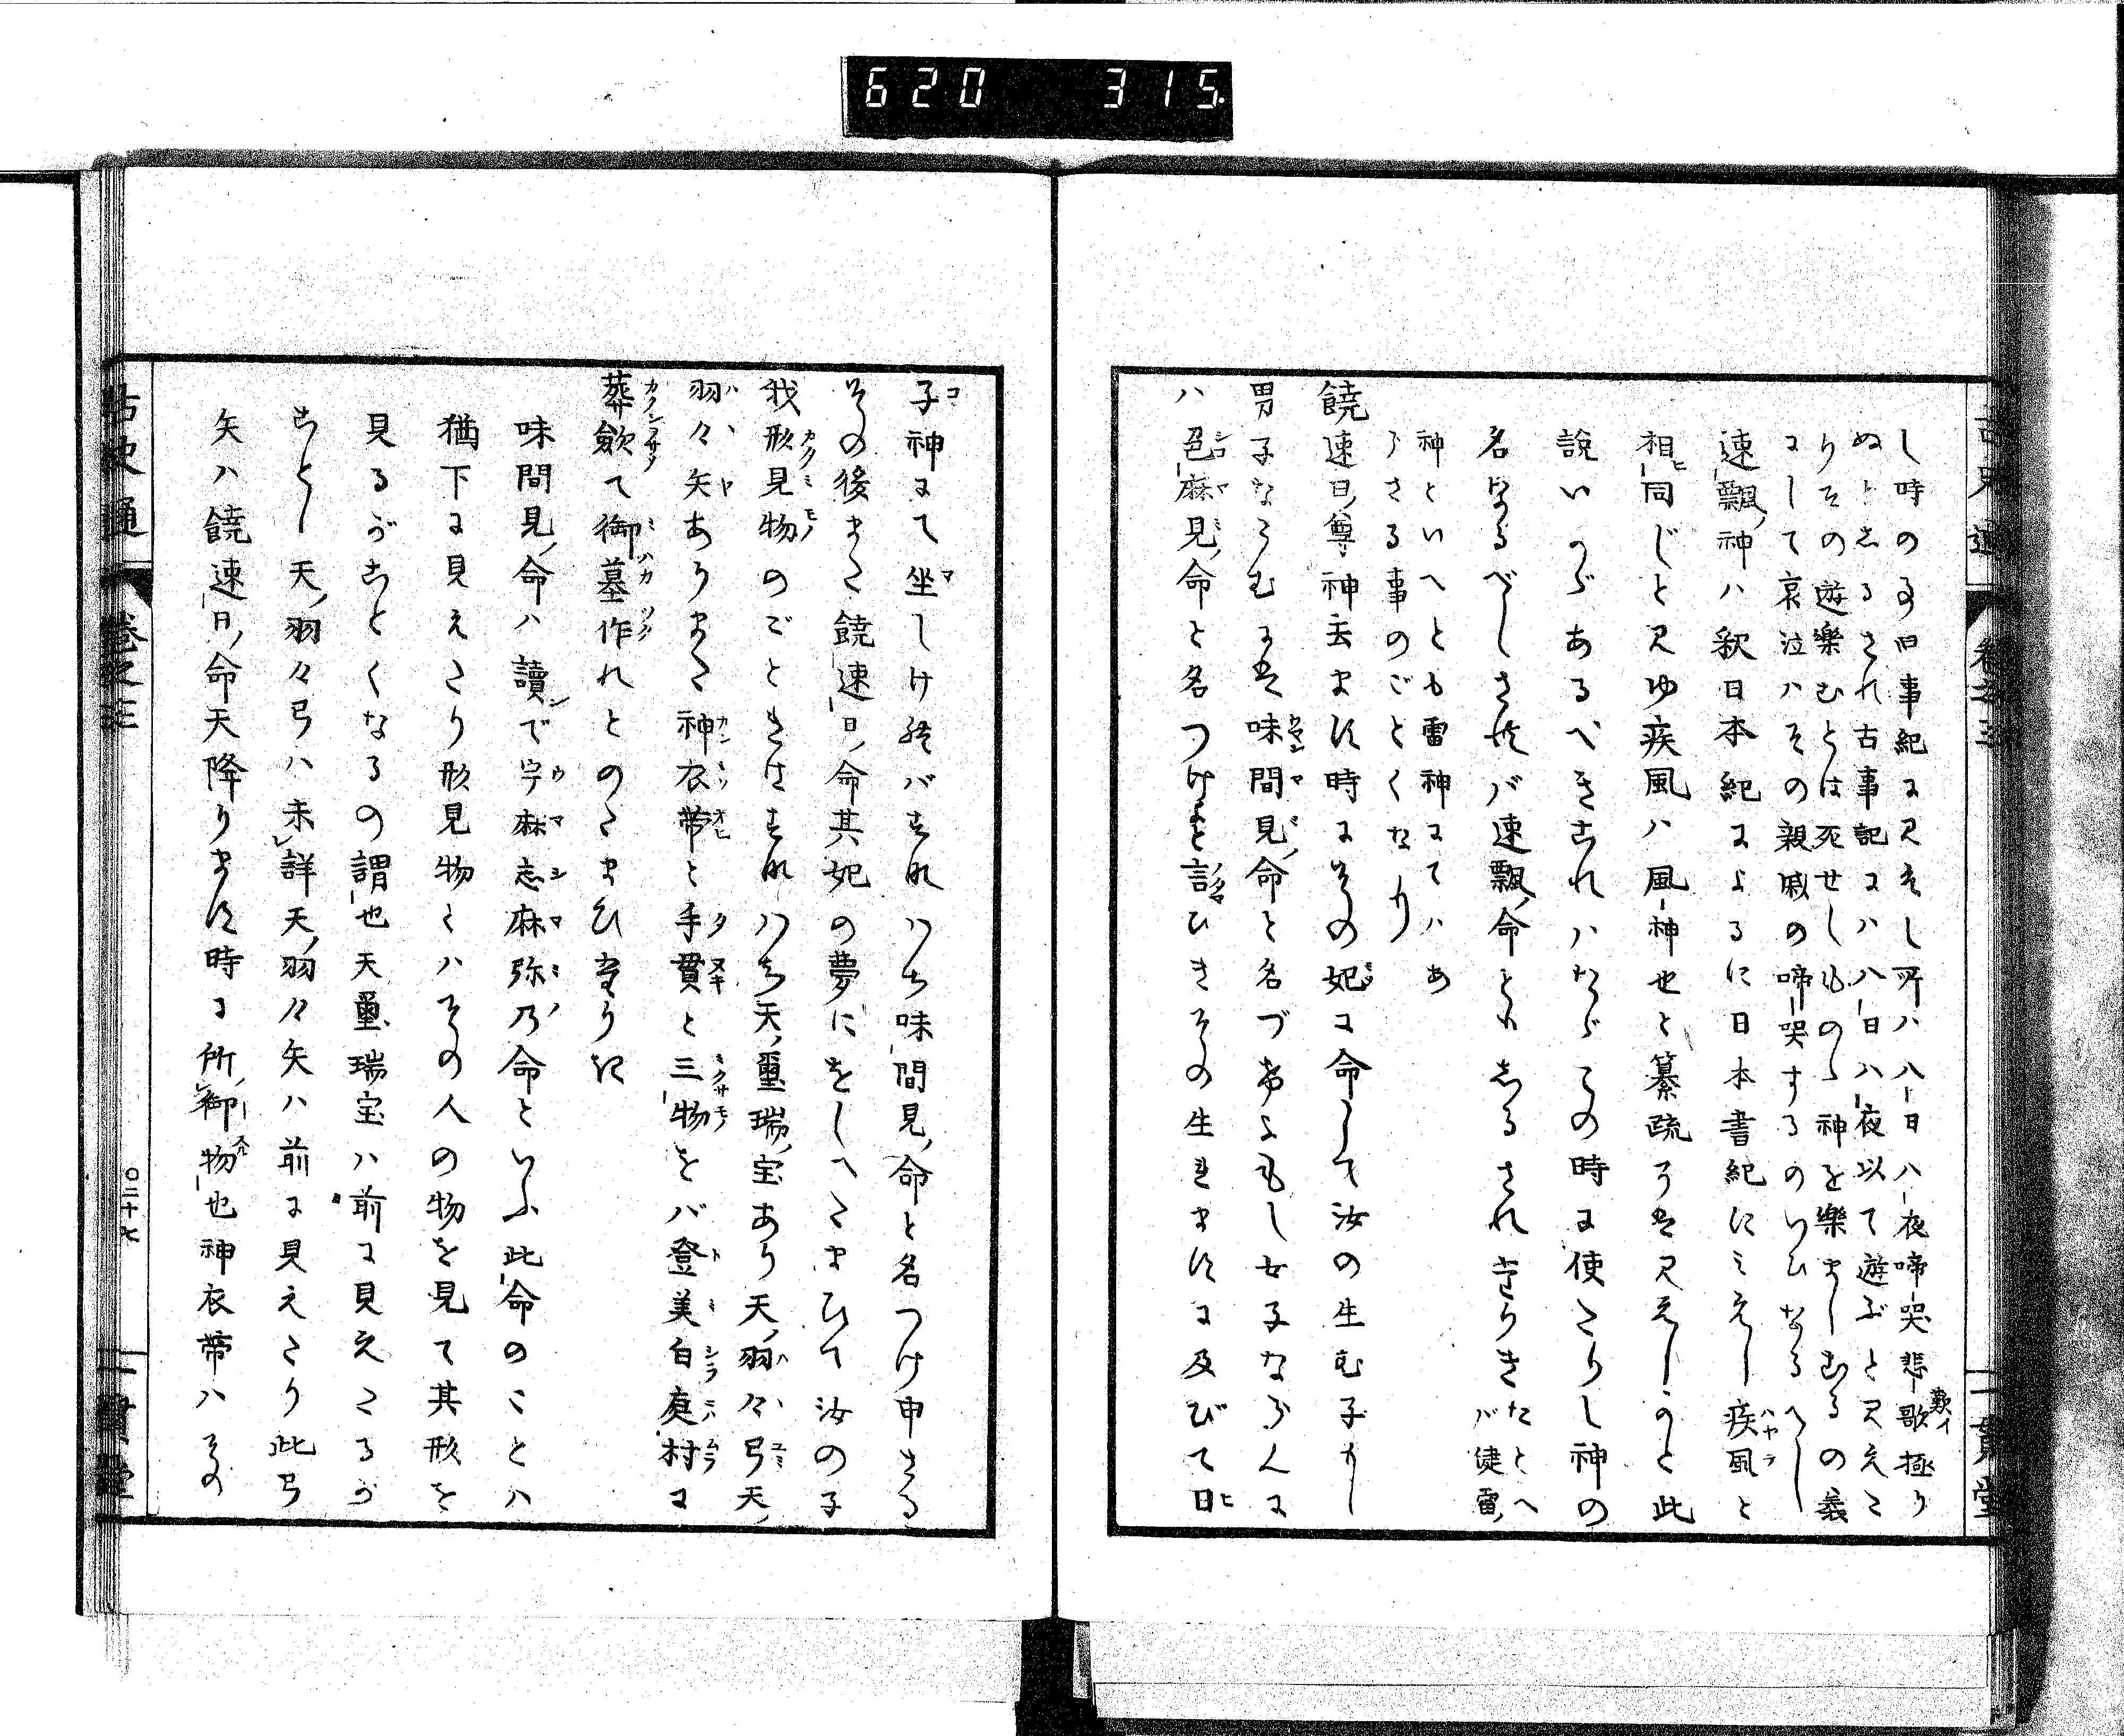 620 315.
古史通 卷之三 一貫堂
し時の事旧事紀に見えし所ハ八日八夜啼哭悲歌極り
歎イ
ぬとしるされ古事記にハ八日八夜以て遊ぶと見えた
りその遊樂むとは死せしものゝ神を樂ましむるの義
にして哀泣ハその親戚の啼哭するのいひなるへし
速飄神ハ釈日本紀によるに日本書紀にミえし疾風と
相同じと見ゆ疾風ハ風神也と纂疏にも見えしかと此
説いかゞあるべきこれハたゞその時に使たりし神の
名なるべしさらバ速飄命としるされたりきたとへバ健雷
神といへとも雷神にてハあらさる事のごとくなり
饒速日尊神去ます時にその妃に命して汝の生む子もし
男子ならむには味間見命と名づけよもし女子ならんに
ハ色麻見命と名つけよと詔ひきその生れますに及びて日
子神にて坐しけれバすなハち味間見命と名つけ申さる
その後また饒速日命其妃の夢にをしへたまひて汝の子
我形見物のごときはすなハち天璽瑞宝あり天羽々弓天
羽々矢ありまた神衣帯と手貫と三物をバ登美白庭村に
葬斂て御墓作れとのたまひたりき
味間見命ハ讀で宇麻志麻弥乃命といふ此命のことハ
猶下に見えたり形見物とハその人の物を見て其形を
見るがごとくなるの謂也天璽瑞宝ハ前に見えたるが
ごとし天羽々弓ハ未詳天羽々矢ハ前に見えたり此弓
矢ハ饒速日命天降ります時に所御物也神衣帯ハその
古史通 卷之三 〇二十七 一貫堂